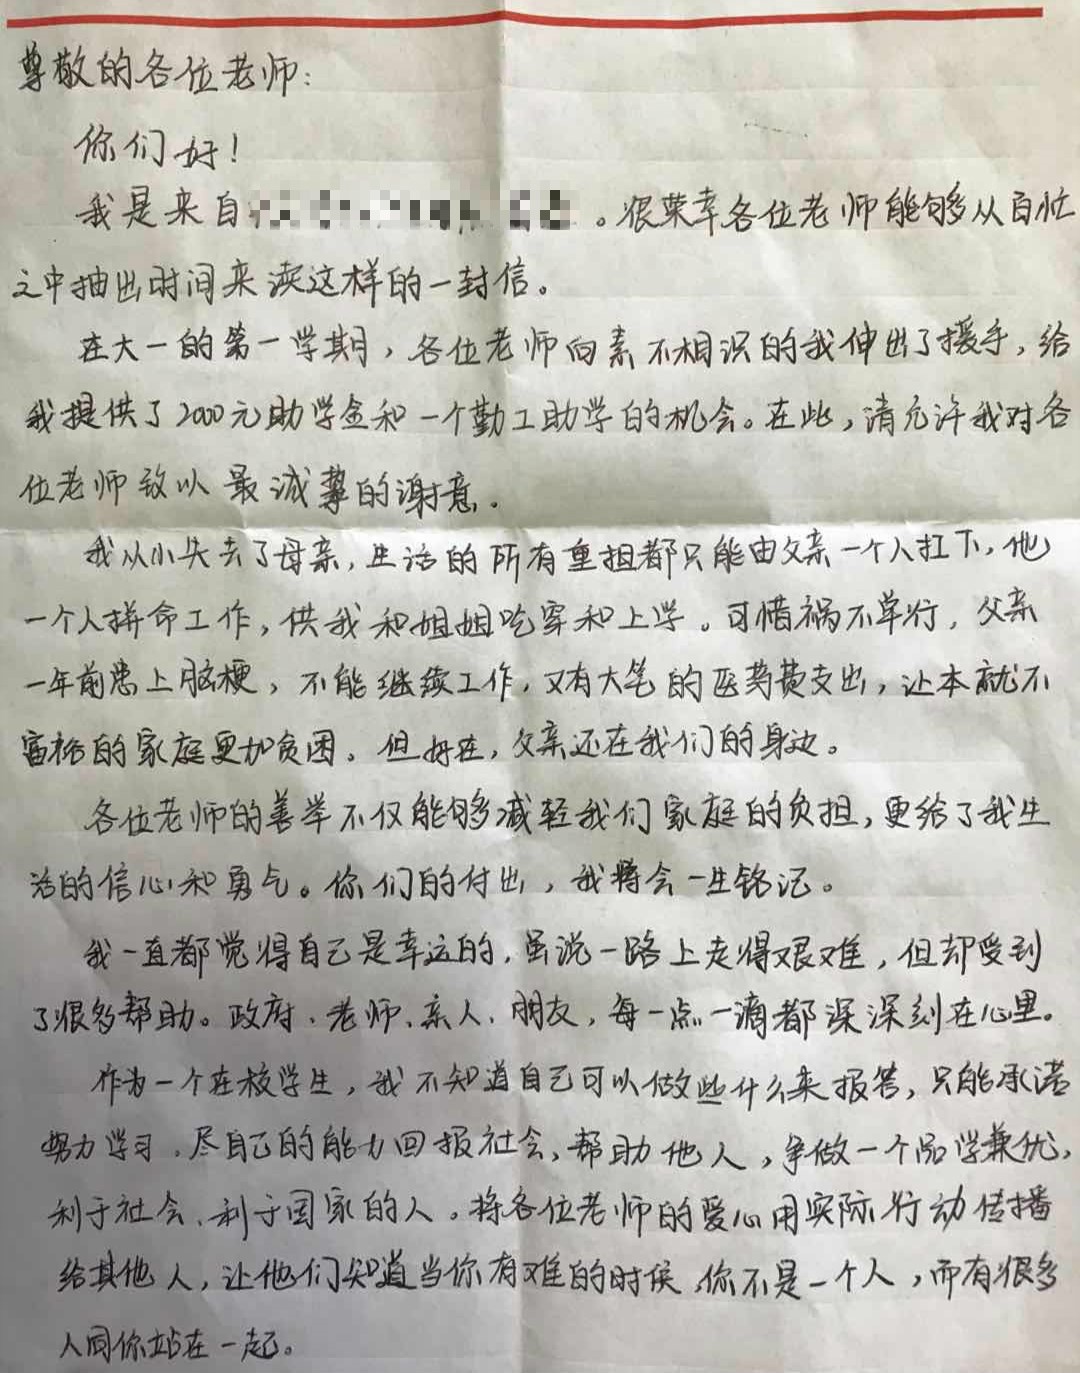 尊敬的各位老师：
你们好！
我是来自 。很荣幸各位老师能够从百忙
之中抽出时间来读这样的一封信。
在大一的第一学期，各位老师向素不相识的我伸出了援手，给
我提供了2000元助学金和一个勤工助学的机会。在此，请允许我对各
位老师致以最诚挚的谢意。
我从小失去了母亲，生活的所有重担都只能由父亲一个人扛下，他
一个人拼命工作，供我和姐姐吃穿和上学。可惜祸不单行，父亲
一年前患上脑梗，不能继续工作，又有大笔的医药费支出，让本就不
富裕的家庭更加贫困。但好在，父亲还在我们的身边。
各位老师的善举不仅能够减轻我们家庭的负担，更给了我生
活的信心和勇气。你们的付出，我将会一生铭记。
我一直都觉得自己是幸运的，虽说一路上走得艰难，但却受到
了很多帮助。政府、老师、亲人、朋友，每一点一滴都深深刻在心里。
作为一个在校学生，我不知道自己可以做些什么来报答，只能承诺
努力学习，尽自己的能力回报社会，帮助他人，争做一个品学兼优，
利于社会、利于国家的人。将各位老师的爱心用实际行动传播
给其他人，让他们知道当你有难的时候，你不是一个人，而有很多
人同你站在一起。